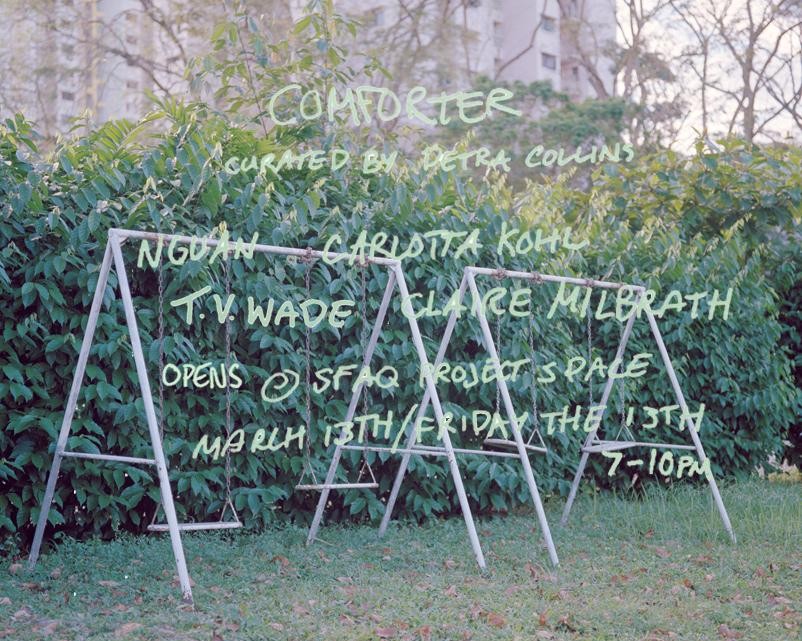 COMFORTER
CURATED BY PETRA COLLINS
NGUAN CARLOTTA KOHL
T.V. WADE CLAIRE MILBRATH
OPENS @ SFAQ PROJECT SPACE
MARCH 13TH/FRIDAY THE 13TH
7-10PM